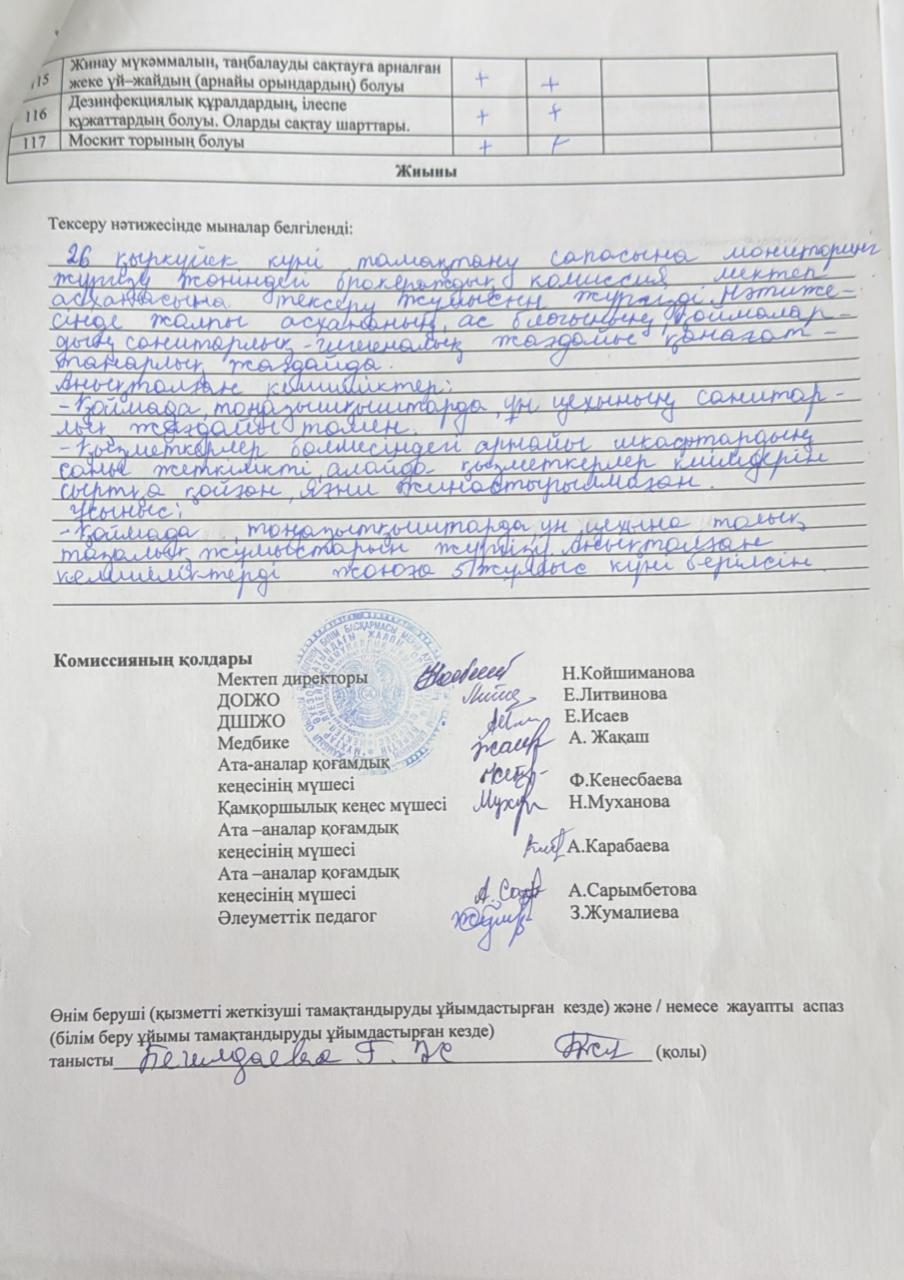 115 Жинау мүкәммалын, таңбалауды сақтауға арналған жеке үй–жайдың (арнайы орындардың) болуы + +
116 Дезинфекциялық құралдардың, ілеспе құжаттардың болуы. Оларды сақтау шарттары. + +
117 Москит торының болуы + +
Жиыны
Тексеру нәтижесінде мыналар белгіленді:
26 қыркүйек күні тамақтану сапасына мониторинг
жүргізу жөніндегі бракераждық комиссия мектеп
асханасына тексеру жұмысын жүргізді. Нәтиже-
сінде жалпы асхананың, ас блогының, қоймалар-
дың санитарлық-гигиеналық жағдайы қанағат-
танарлық жағдайда.
Анықталған кемшіліктер:
- Қоймада, тоңазытқыштарда, ұн цехының санитар-
лық жағдайы төмен.
- Қызметкерлер бөлмесіндегі арнайы шкафтардың
саны жеткілікті, алайда қызметкерлер киімдерін
сыртқа қойған, яғни жинақтырылмаған.
Ұсыныс:
- Қоймада, тоңазытқыштарда, ұн цехына толық
тазалық жұмыстарын жүргізу. Анықталған
кемшіліктерді жоюға 5 жұмыс күні берілсін
Комиссияның қолдары
Мектеп директоры Н.Койшиманова
ДОІЖО Е.Литвинова
ДШІЖО Е.Исаев
Медбике А. Жақаш
Ата-аналар қоғамдық
кеңесінің мүшесі Ф.Кенесбаева
Қамқоршылық кеңес мүшесі Н.Муханова
Ата –аналар қоғамдық
кеңесінің мүшесі А.Карабаева
Ата –аналар қоғамдық
кеңесінің мүшесі А.Сарымбетова
Әлеуметтік педагог З.Жумалиева
Өнім беруші (қызметті жеткізуші тамақтандыруды ұйымдастырған кезде) және / немесе жауапты аспаз
(білім беру ұйымы тамақтандыруды ұйымдастырған кезде)
танысты Бегилдаева Г. Ж (қолы)